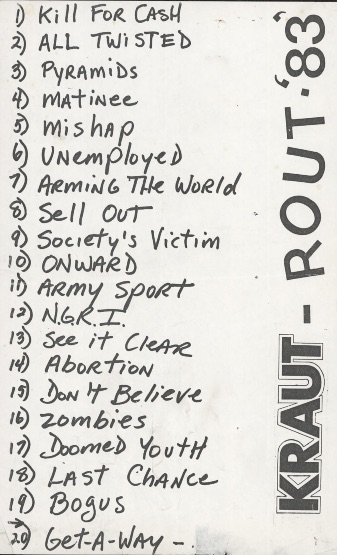 1) Kill For Cash
2) ALL TWiSTED
3) Pyramids
4) matinee
5) mishap
6) Unemployed
7) Arming The World
8) Sell Out
9) Society's Victim
10) ONWARD
11) Army Sport
12) N.G.R.I.
13) See it Clear
14) Abortion
15) Don't Believe
16) Zombies
17) Doomed Youth
18) Last Chance
19) Bogus
→20) Get-A-Way -.
KRAUT - ROUT·'83